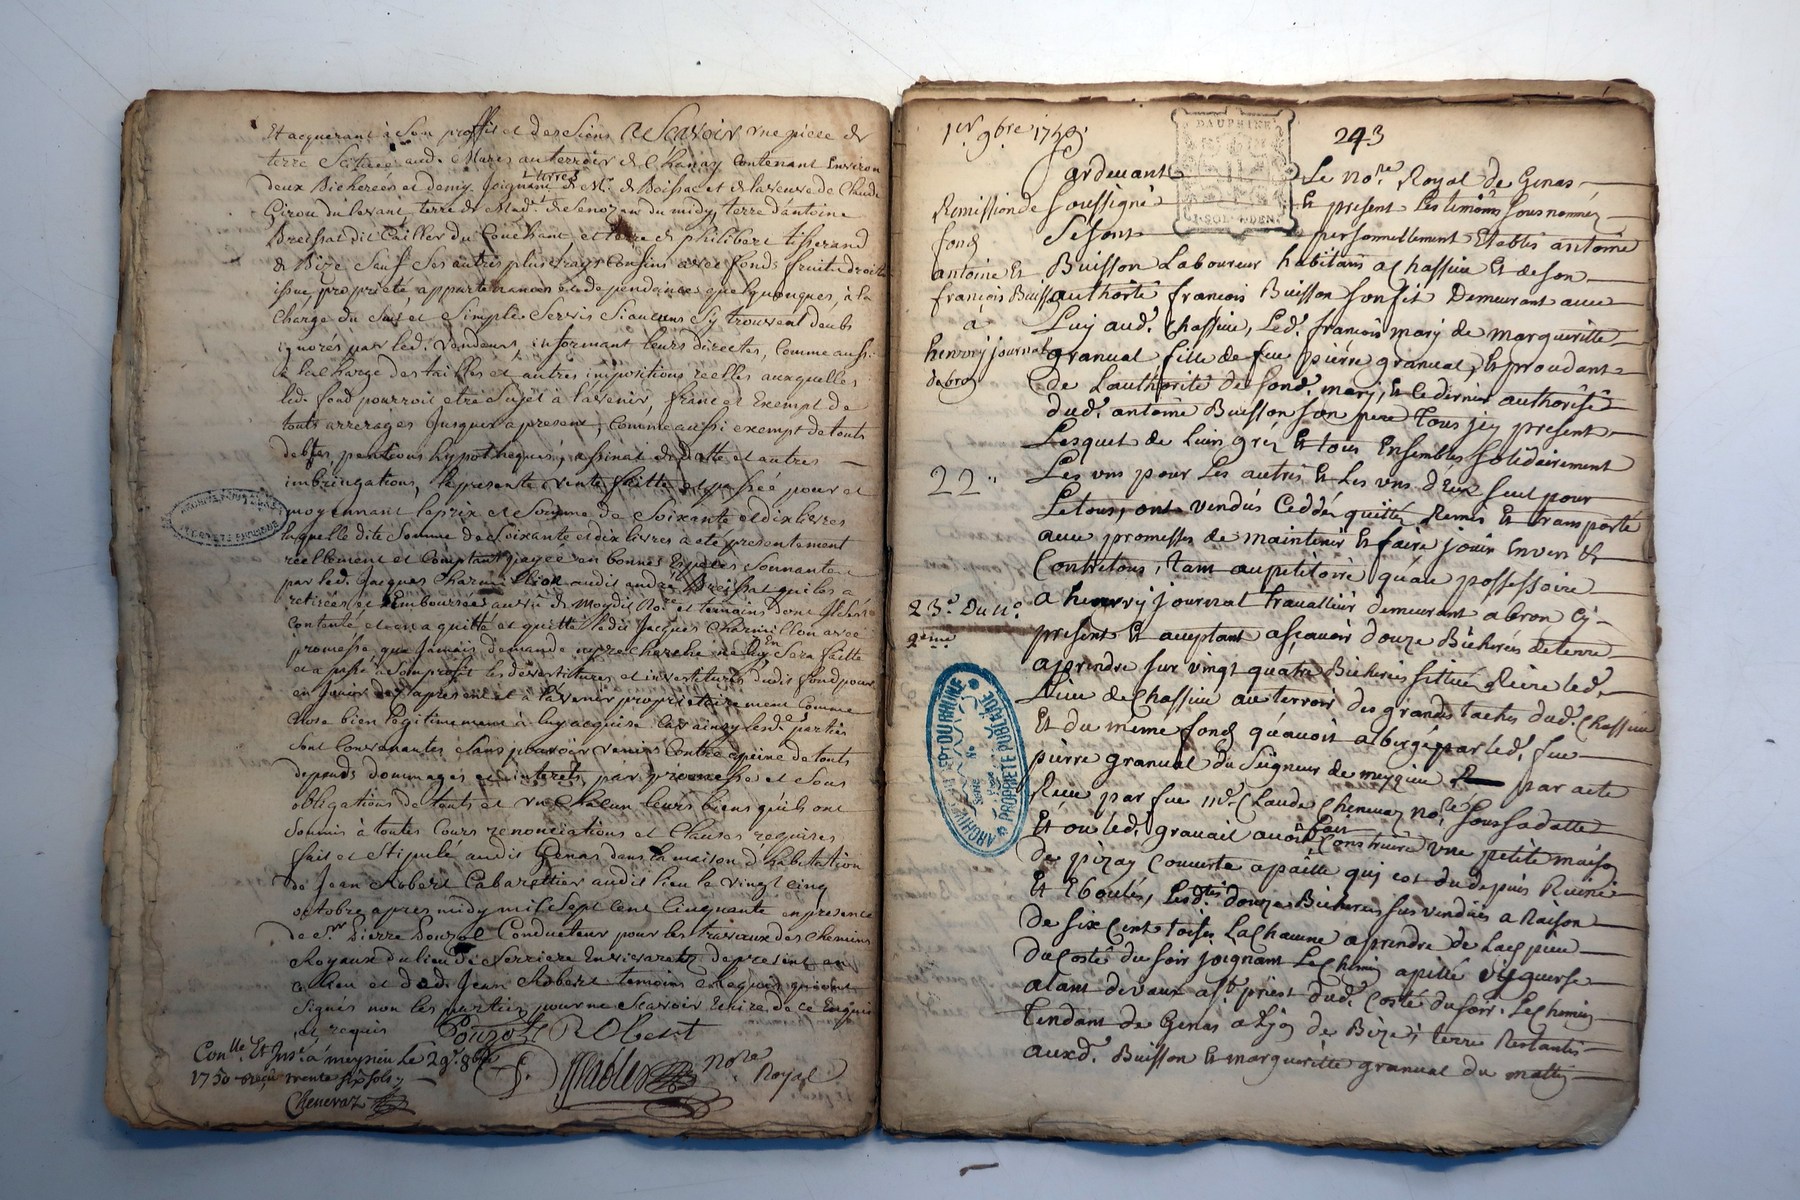 Et acquerant à son proffit et des siens A Scavoir une piece de
terre scituée aud. Mares au terroir de Chanay contenant Environ
deux Bicherées et demy Joignant terres de Mr. de Boissac et de la veuve de Claude
Girou du levant, terre de Mad. de Senozan du midy terre d'antoine
Bressat dit Cailler du Couchant, et terre de philibert tisserand
de Bize Sauf ses autres plus vrays Confins avec fonds fruits droits
issue propriété, appartenances et dependances quelquonques, à la
Charge du Suit et Simple Servis Si aucuns Sy trouvent deubs
ignorés par led. vendeur, informant leurs directes, Comme aussi
à la Charge des tailles et autres impositions reelles auxquelles
led. fond pourroit etre Sujet à l'avenir, franc et Exempt de
touts arrerages Jusques a present, comme aussi exempt de touts
debtes, pentions hypotheques, assinat de Dotte et autres
imbringations, la presente vente faitte et passée pour et
moyennant le prix et Somme de Soixante et dix livres
laquelle dite Somme de Soixante et dix livres a été presentement
reellement et Comptant payée en bonnes Especes Sonnantes
par led. Jacques Charmillion audit andré Bressat qui les a
retirées et Emboursées au vû de Moydit Nore et temoins dont
contente et en a quitté et quitte ledit Jacques Charmillon avec
promesse que Jamais demande ny recherche ne luy En Sera faitte
et a passé à Son profit les devestitures et investitures dudit fond pour
en Jouir des apresent et à l'avenir proprietairement Comme
Chose bien légitimement à luy acquise Car ainsy lesd. parties
Sont Convenantes Sans pouvoir venir Contre à peine de touts
depends dommages et interets, par promesse et Sous
obligations de touts et un chacun leurs biens qu'ils ont
Soumis à toutes Cours renonciations et Clauses requises
fait et Stipulé audit Genas dans la maison d'habitation
de Jean Robert Cabarettier audit lieu le vingt cinq
octobre apres midy mil Sept Cent Cinquante en presence
de Sr. Pierre Pouzol Conducteur pour les travaux des Chemins
Royaux du lieu de Serriere En vivarets de present au
lieu et dud. Jean Robert temoins
Signés non les parties pour ne Scavoir Ecrire de ce Enquis
et requis
Pouzol Robert
Conlle. Et Insé. à meyzieu Le 29e. 8bre
1750 reçu trente six sols
Cheneraz
Nore Royal
1er 9bre 1749
DAUPHINE
243
Pardevant Le nore. Royal de Genas
soussigné Et present Les temoins sous nommés
Se sont personnellement Etablis antoine
Buisson Laboureur habitant a Chassieu Et de son
authorité francois Buisson son fils Demeurant avec
Luy aud. Chassieu, Led. francois mary de margueritte
granual fille de feu pierre granual, Et procedant
de Lauthorité de sond. mary, Et ce dernier authorisé
dud. antoine Buisson son pere tous icy present
Lesquel de Leurs gréz Et tous Ensembles solidairement
Les uns pour Les autres Et Les uns d'Eux seul pour
Le tous, ont vendus Ceddé quitté Remis Et transporté
avec promesses de maintenir Et faire jouir Envers &
Contre tous, tant au petitoire qu'au possessoire
a henry journal travailleur demeurant a bron Cy
present Et acceptant a sçavoir douze Bicherées de terre
a prendre sur vingt quatre Bicherées situées Riere led.
Lieu de Chassieu au terroir des grandes taches dud. Chassieu
Et du meme fond qu'avoit albergé par led. feu
pierre granual du Seigneur de meyzieu par acte
Receu par feu me. Claude Cheneraz nore. sous sadatte
Et ou led. granual avoit fait Construire une petite maison
de pizay Couverte a paille qui est du depuis Ruinée
Et Eboulée, Lesd. douze Bicherées sus vendues a Raison
de six Cent toises La Chacune a prendre de Lad. piece
du Costé du soir joignant Le Chemin
alant de vaux a St. priest dud. Costé du soir. Le Chemin
tendant de Genas a Lyon de Bize, terre Restante
auxd. Buisson Et margueritte granual du matin
Remission de
fond
antoine Et
francois Buisson
à
henry journal
de bron
22
23e. Du 11e.
9eme
ARCHIVES DEPT DU RHONE
PROPRIETE PUBLIQUE